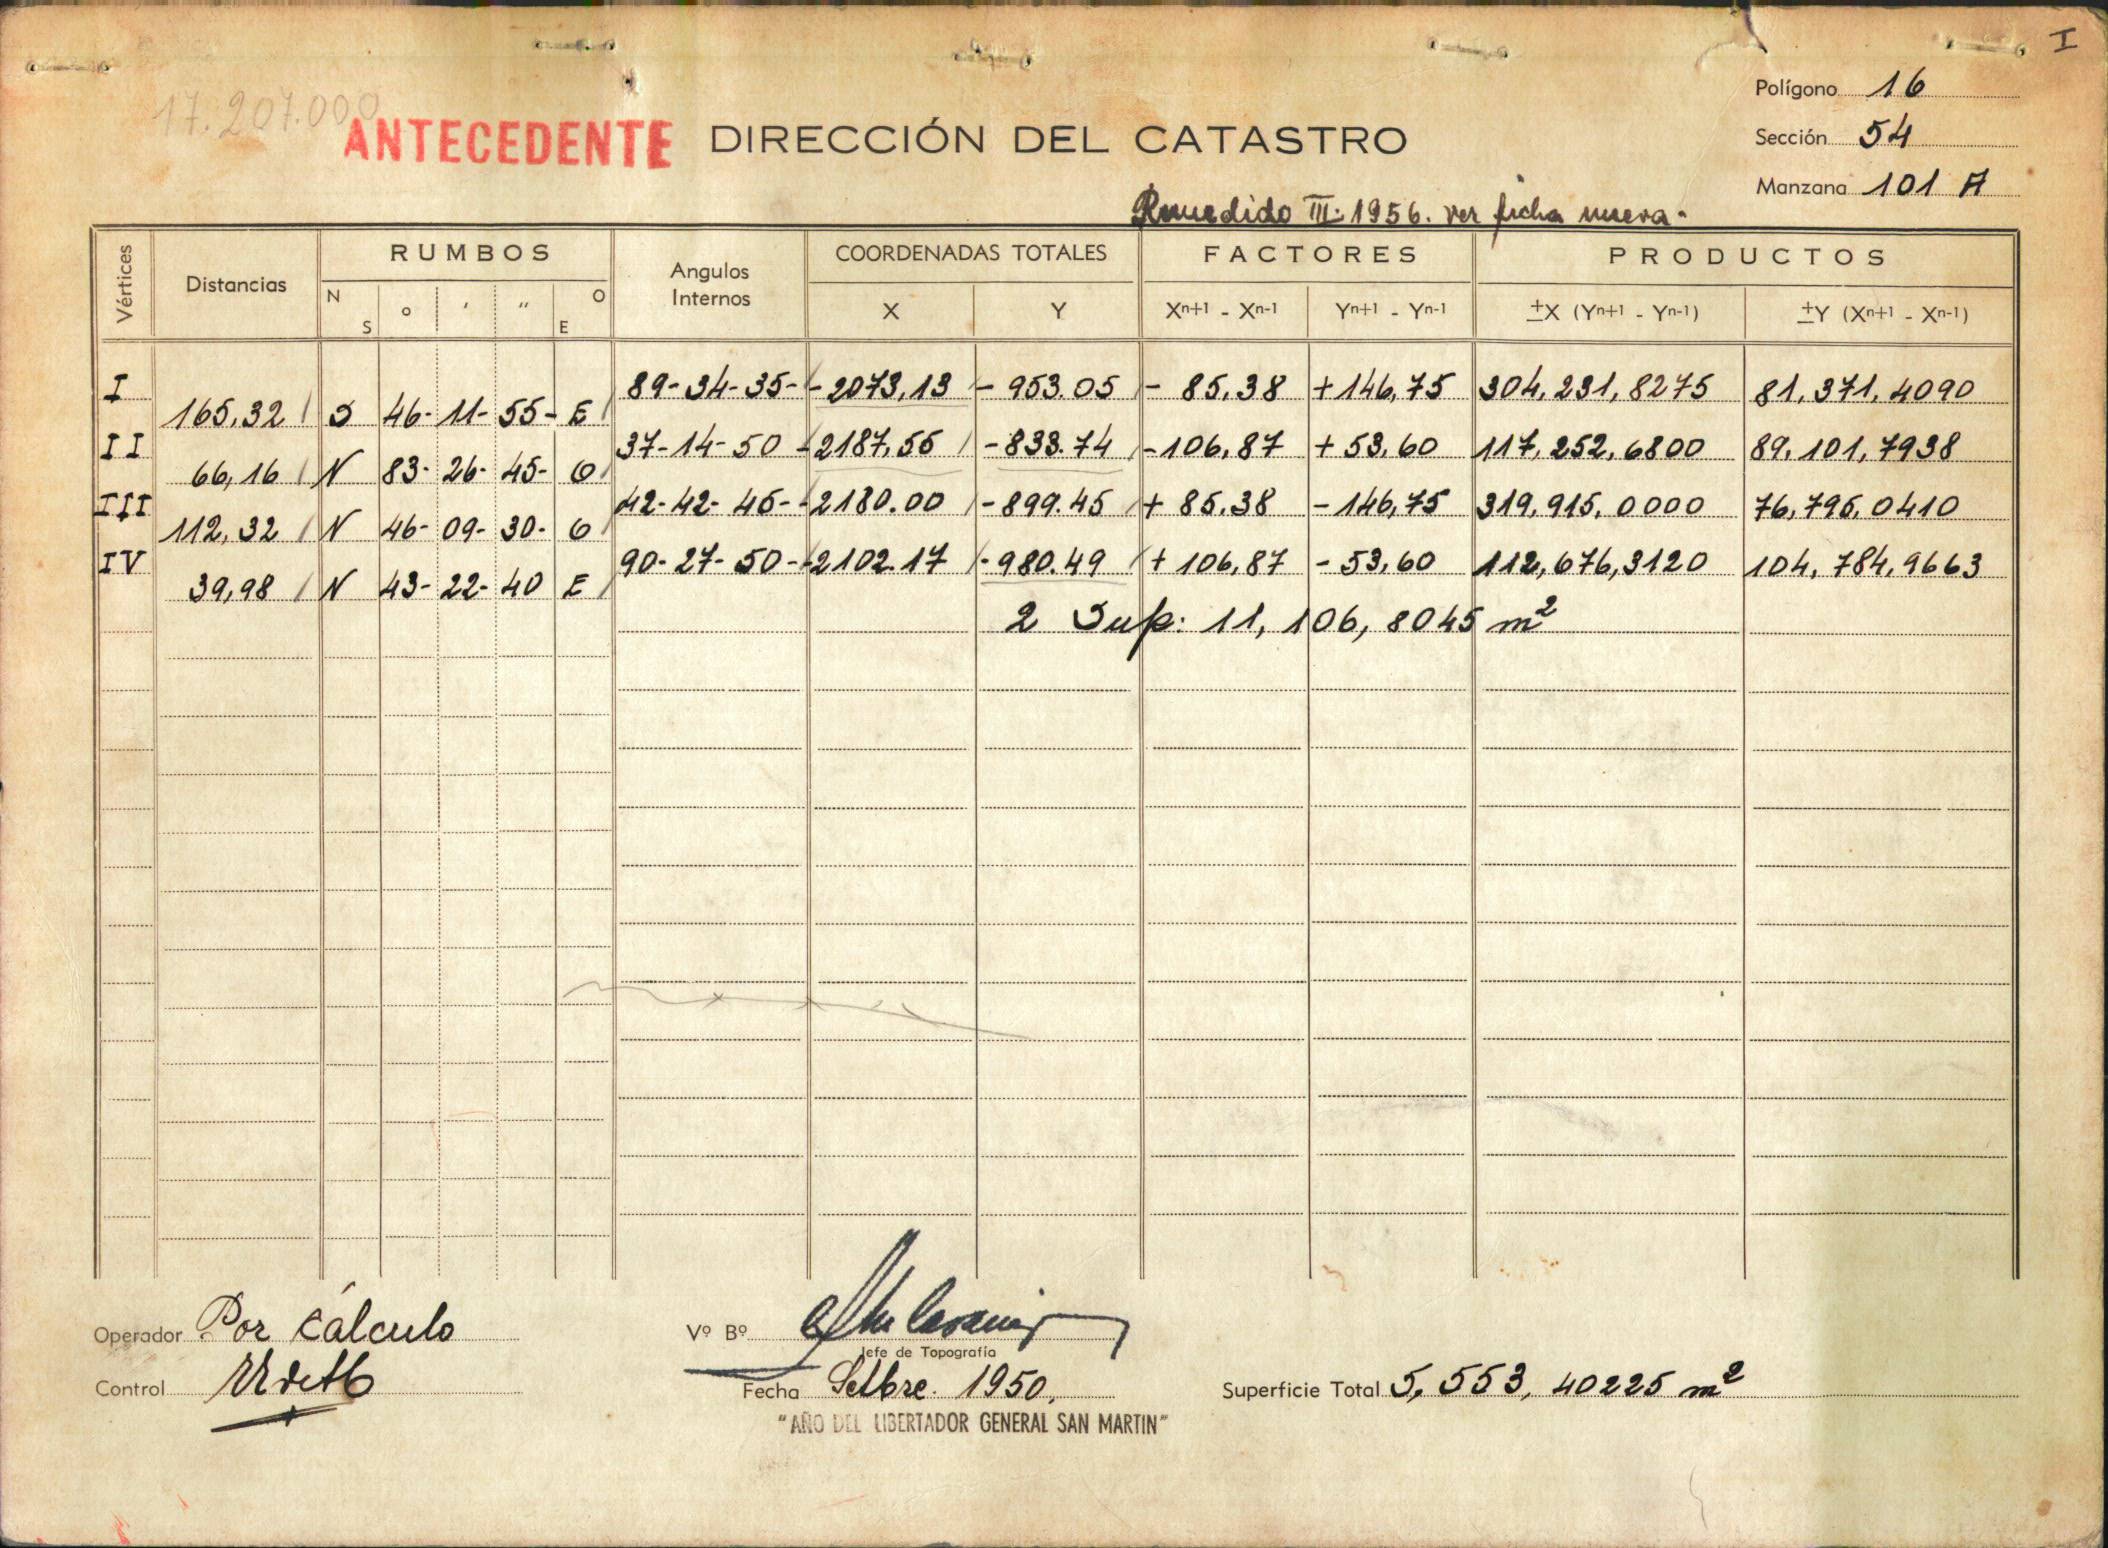 I
Polígono 16
17.207.000
ANTECEDENTE DIRECCIÓN DEL CATASTRO
Sección 54
Manzana 101 A
Remedido III. 1956. ver ficha nueva.
Vértices Distancias RUMBOS Angulos Internos COORDENADAS TOTALES FACTORES PRODUCTOS
N S ° ' " O E X Y Xn+1 - Xn-1 Yn+1 - Yn-1 ±X (Yn+1 - Yn-1) ±Y (Xn+1 - Xn-1)
I 89-34-35- -2073,13 - 953.05 - 85,38 +146,75 304,231,8275 81,371,4090
165,32 S 46- 11- 55- E
II 37-14-50 -2187,55 -833.74 -106,87 + 53,60 117,252,6800 89,101,7938
66,16 N 83- 26- 45- O
III 42-42-45- -2180.00 -899.45 + 85.38 -146,75 319,915,0000 76,795,0410
112,32 N 46- 09- 30- O
IV 90-27-50- -2102.17 -980.49 + 106,87 - 53,60 112,676,3120 104,784,9663
39,98 N 43- 22- 40 E
2 Sup: 11,106,8045 m²
Operador Por cálculo
Vº Bº
Jefe de Topografía
Control
Fecha Setbre. 1950.
Superficie Total 5,553,40225 m²
"AÑO DEL LIBERTADOR GENERAL SAN MARTIN"